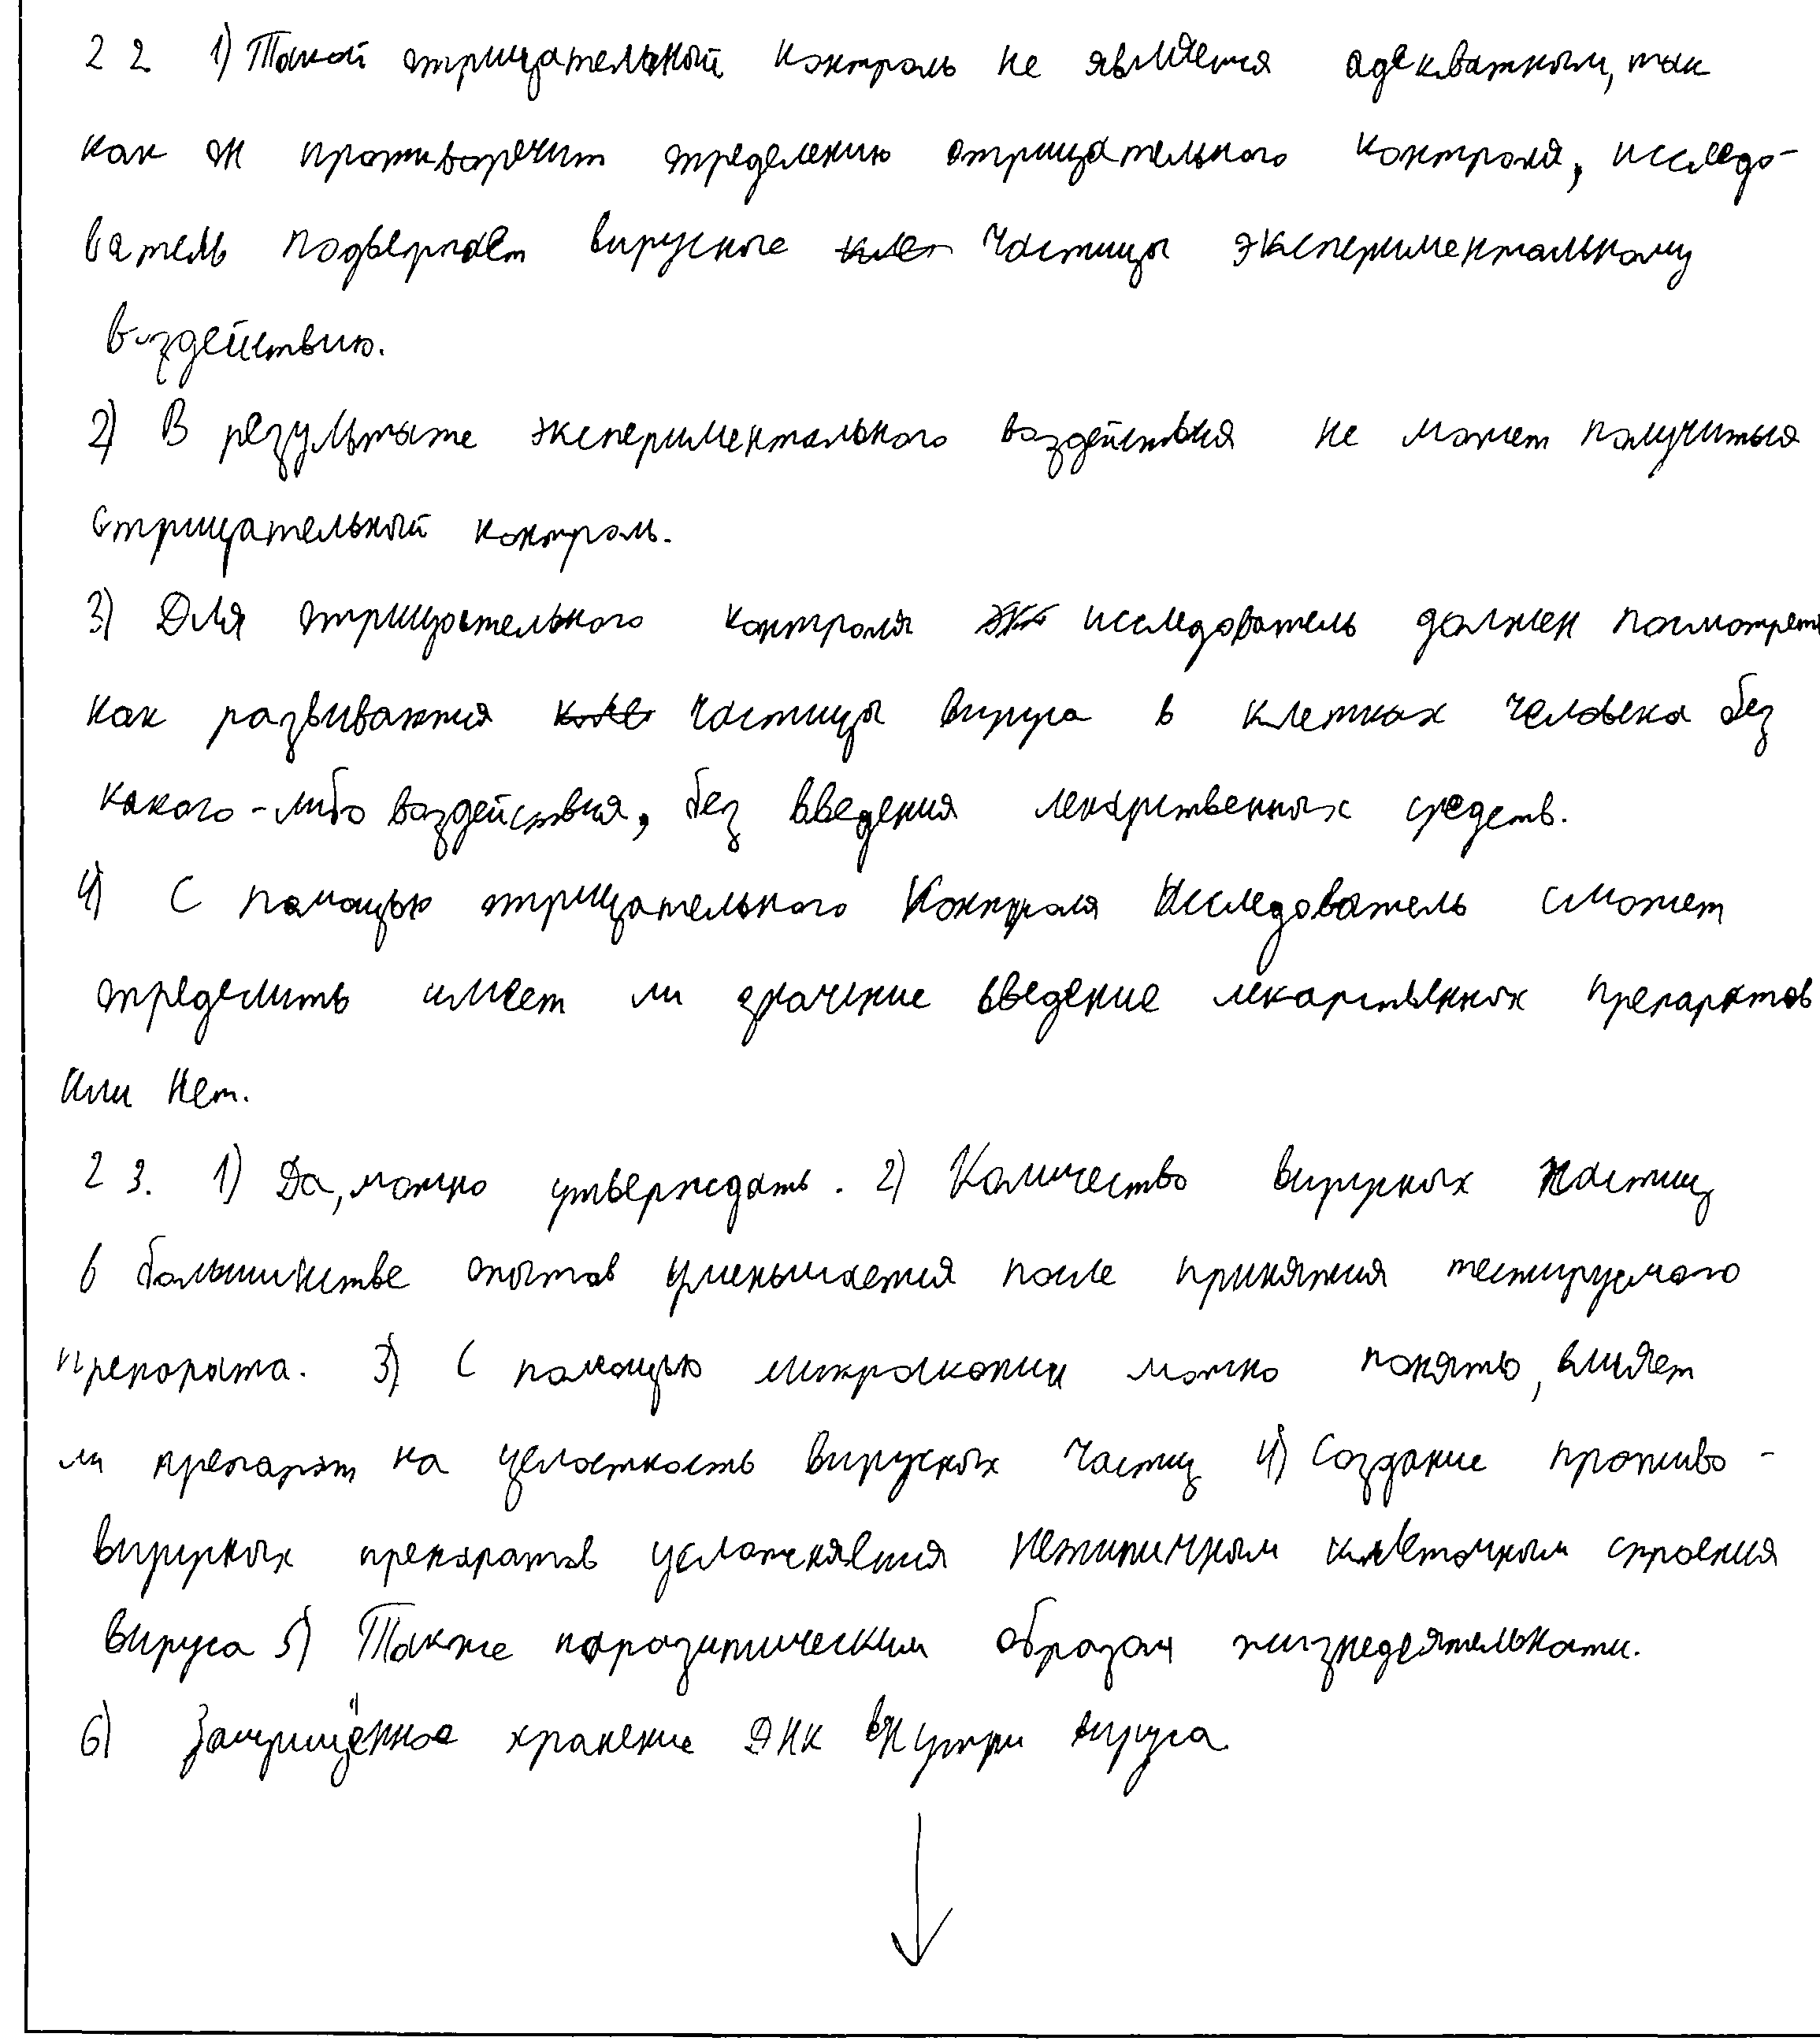 22 1) Такой отрицательный контроль не является адекватным, так
как он противоречит определению отрицательного контроля, исследо-
ватель подвергает вирусные клет частицы экспериментальному
воздействию.
2) В результате экспериментального воздействия не может получиться
отрицательный контроль.
3) Для отрицательного контроля исследователь должен посмотреть
как развиваются кле частицы вируса в клетках человека без
какого-либо воздействия, без введения лекарственных средств.
4) С помощью отрицательного контроля исследователь сможет
определить имеет ли значение введение лекарственных препаратов
или нет.
23. 1) Да, можно утверждать. 2) Количество вирусных частиц
в большинстве опытов уменьшается после принятия тестируемого
препарата. 3) С помощью микроскопии можно понять, влияет
ли препарат на целостность вирусных частиц 4) Создание противо-
вирусных препаратов усложняется нетипичным клеточным строения
вируса 5) Также паразитическим образом жизнедеятельности.
6) Защищённое хранение ДНК внутри вируса.